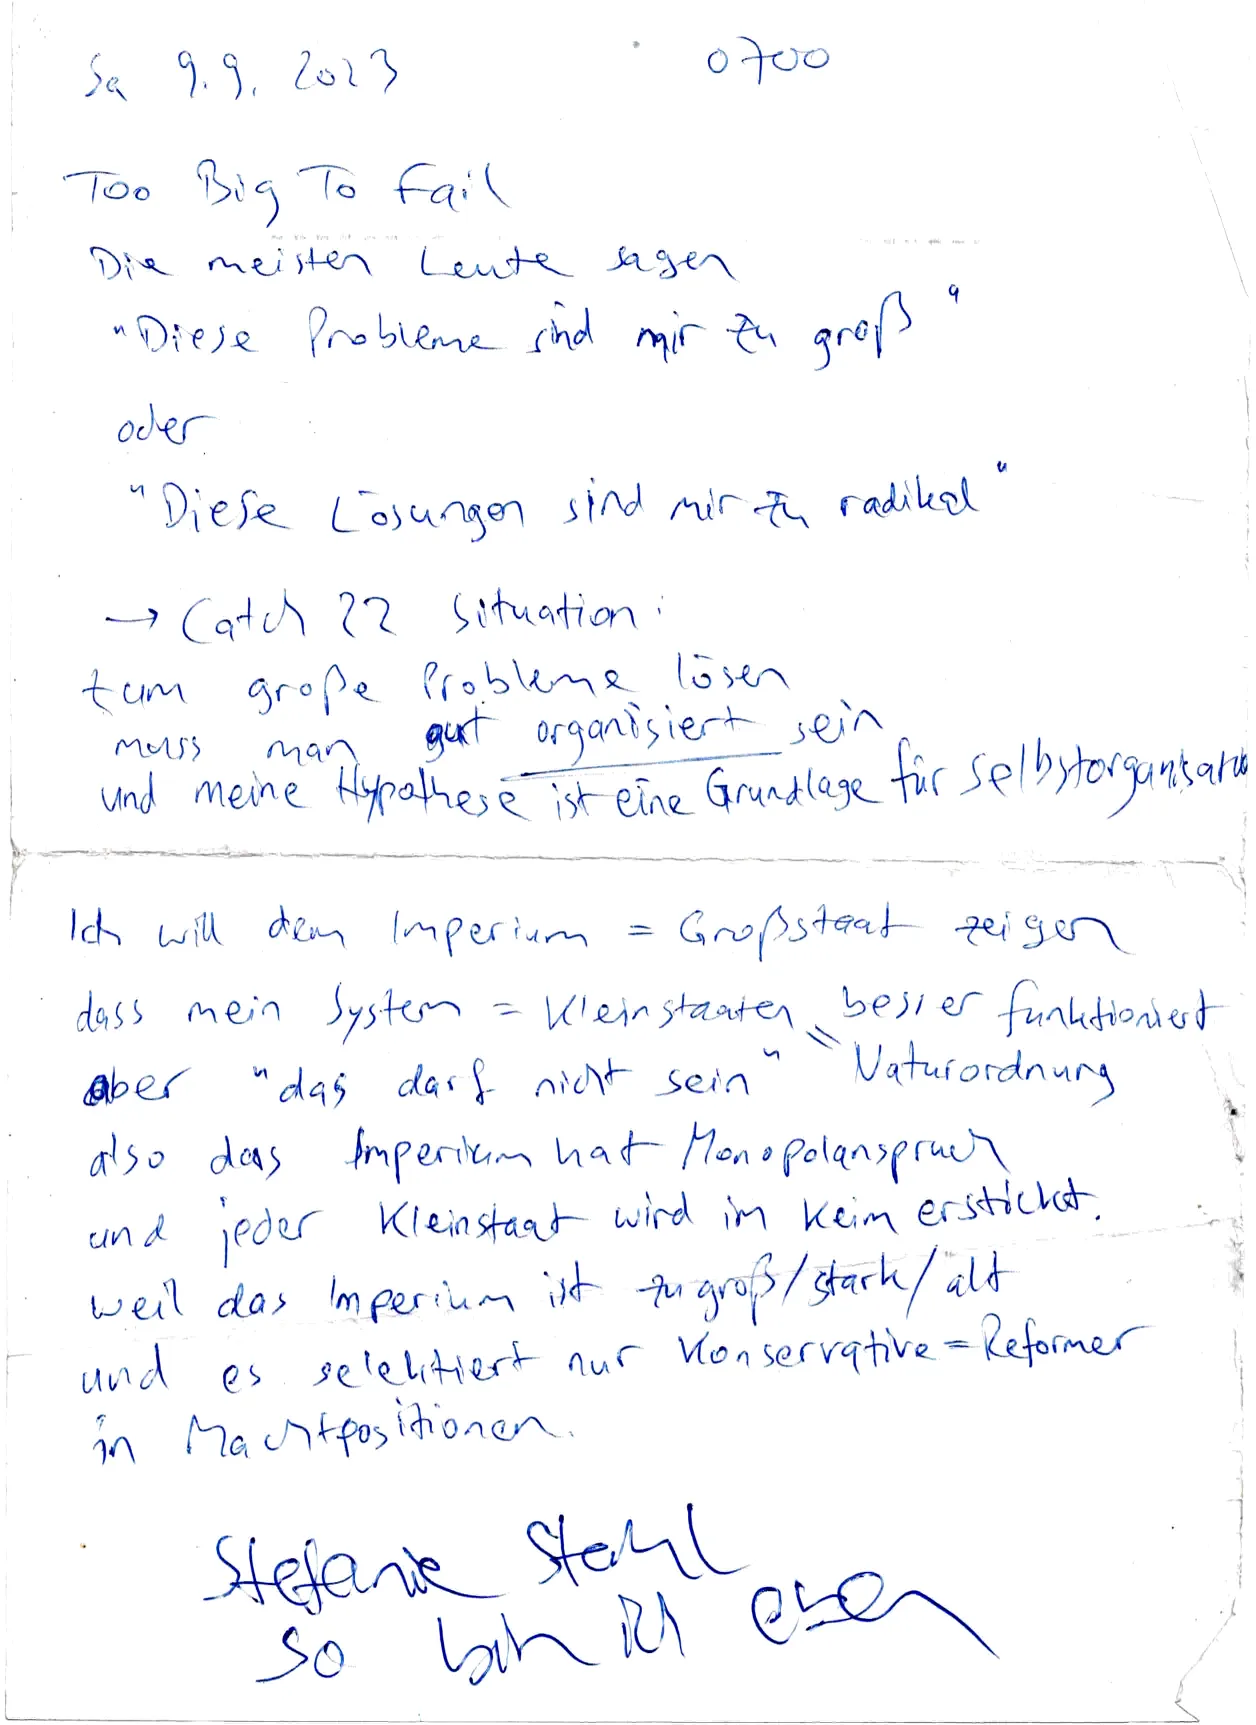 Sa 9.9. 2023 0700
Too Big To Fail
Die meisten Leute sagen
"Diese Probleme sind mir zu groß"
oder
"Diese Lösungen sind mir zu radikal"
→ Catch 22 Situation:
um große Probleme lösen
muss man gut organisiert sein
und meine Hypothese ist eine Grundlage für Selbstorganisation
Ich will dem Imperium = Großstaat zeigen
dass mein System = Kleinstaaten besser funktioniert
aber "das darf nicht sein" = Naturordnung
also das Imperium hat Monopolanspruch
und jeder Kleinstaat wird im Keim erstickt.
weil das Imperium ist zu groß/stark/alt
und es selektiert nur Konservative = Reformer
in Machtpositionen.
Stefanie Stahl
so bin ich eben